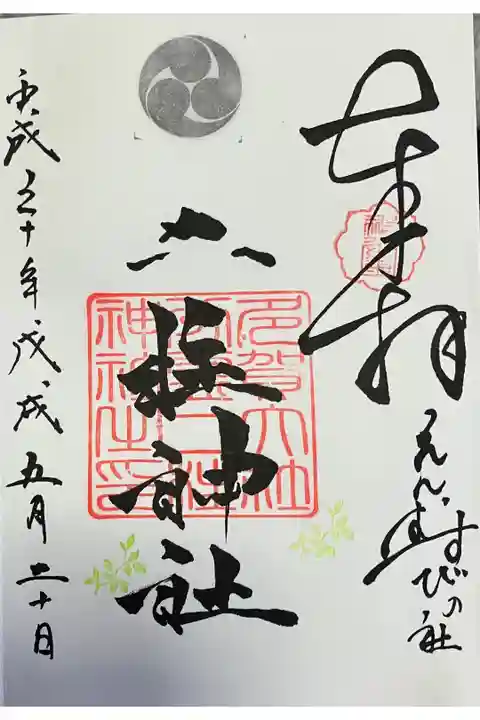 奉拝
えんむすびの社
二柱神社
多賀大社
二柱
神社之印
平成三十年戊戌五月二十日